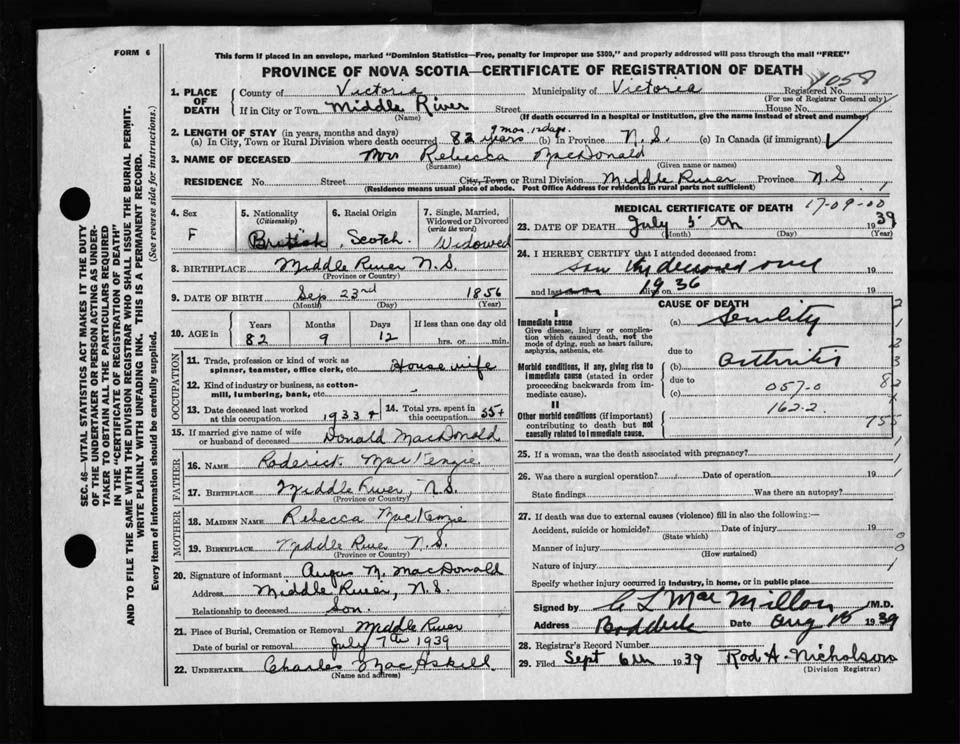 FORM 6
This form if placed in an envelope, marked "Dominion Statistics—Free, penalty for improper use $300," and properly addressed will pass through the mail "FREE"
PROVINCE OF NOVA SCOTIA—CERTIFICATE OF REGISTRATION OF DEATH
SEC. 46—VITAL STATISTICS ACT MAKES IT THE DUTY
OF THE UNDERTAKER OR PERSON ACTING AS UNDER-
TAKER TO OBTAIN ALL THE PARTICULARS REQUIRED
IN THE "CERTIFICATE OF REGISTRATION OF DEATH"
AND TO FILE THE SAME WITH THE DIVISION REGISTRAR WHO SHALL ISSUE THE BURIAL PERMIT.
WRITE PLAINLY WITH UNFADING INK. THIS IS A PERMANENT RECORD.
Every item of information should be carefully supplied. (See reverse side for instructions.)
1. PLACE OF DEATH County of Victoria Municipality of Victoria Registered No. 4058
(For use of Registrar General only)
If in City or Town Middle River Street House No.
(Name) (If death occurred in a hospital or institution, give the name instead of street and number)
2. LENGTH OF STAY (in years, months and days)
(a) In City, Town or Rural Division where death occurred 82 years 9 mos. 12 days. (b) In Province N.S. (c) In Canada (if immigrant)
3. NAME OF DECEASED Mrs Rebecca MacDonald
(Surname) (Given name or names)
RESIDENCE No. Street City, Town or Rural Division Middle River Province N.S
(Residence means usual place of abode. Post Office Address for residents in rural parts not sufficient)
4. Sex F
5. Nationality (Citizenship) British
6. Racial Origin Scotch
7. Single, Married, Widowed or Divorced (write the word) Widowed
8. BIRTHPLACE Middle River N.S.
(Province or Country)
9. DATE OF BIRTH Sep 23rd 1856
(Month) (Day) (Year)
10. AGE in Years Months Days If less than one day old
82 9 12 hrs. or min.
OCCUPATION
11. Trade, profession or kind of work as spinner, teamster, office clerk, etc. House wife
12. Kind of industry or business, as cotton-mill, lumbering, bank, etc.
13. Date deceased last worked at this occupation 1933 +
14. Total yrs. spent in this occupation 55+
15. If married give name of wife or husband of deceased Donald MacDonald
FATHER
16. NAME Roderick MacKenzie
17. BIRTHPLACE Middle River, N.S.
(Province or Country)
MOTHER
18. MAIDEN NAME Rebecca MacKenzie
19. BIRTHPLACE Middle River N.S.
(Province or Country)
20. Signature of informant Angus M. MacDonald
Address Middle River, N.S.
Relationship to deceased Son.
21. Place of Burial, Cremation or Removal Middle River
Date of burial or removal July 7th 1939
22. UNDERTAKER Charles MacAskill
(Name and address)
MEDICAL CERTIFICATE OF DEATH 17-09-00
23. DATE OF DEATH July 5th 1939
(Month) (Day) (Year)
24. I HEREBY CERTIFY that I attended deceased from:
Saw the deceased once 19
and last saw h alive on 1936 19
CAUSE OF DEATH
I
Immediate cause (a) Senility
Give disease, injury or complication which caused death, not the mode of dying, such as heart failure, asphyxia, asthenia, etc.
due to
Morbid conditions, if any, giving rise to immediate cause (stated in order proceeding backwards from immediate cause). (b) Arthritis
due to
(c) 057-0
162-2
II
Other morbid conditions (if important) contributing to death but not causally related to immediate cause.
755
25. If a woman, was the death associated with pregnancy?
26. Was there a surgical operation? Date of operation 19
State findings Was there an autopsy?
27. If death was due to external causes (violence) fill in also the following:—
Accident, suicide or homicide? Date of injury 19
(State which)
Manner of injury
(How sustained)
Nature of injury
Specify whether injury occurred in industry, in home, or in public place
Signed by C L MacMillan M.D.
Address Baddeck Date Aug 15 1939
28. Registrar's Record Number
29. Filed Sept 6th 1939 Rod A. Nicholson
(Division Registrar)